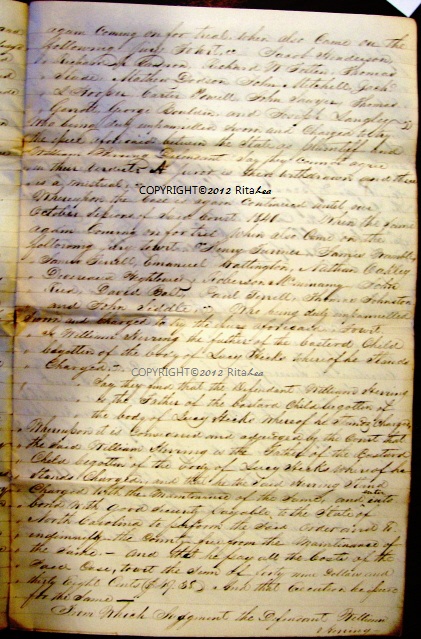 again coming on for trial When also Came on the
following Jury To wit, Jacob Henderson
Richard Richard W Thomas
Slade Mathew Dodson John Mitchell
Carter Powell John Thomas
Garrott George and Joseph Langley
Who being duly empannelled Sworn and Charged to try
the the State as Plaintiff and
William Herring Defendant Say they Cannot agree
in their Verdict A Juror is then withdrawn and there
is a mistrial,
COPYRIGHT©2012 RitaLea
Whereupon the Case is again Continued until our
October Sessions of Said Court 1841 When the same
again Coming on for trial When also Came on the
following Jury to wit Henry Turner James
James Emanuel Nathan Oakley
Hightower Roberson John
Reid, David Thomas Johnston
and John Who being duly empannelled
Sworn and Charged to try the
is William Herring the father of the Bastard Child
begotten of the body of Lucy Hicks whereof he Stands
Charged.
COPYRIGHT©2012 RitaLea
Say they find that the Defendant William Herring
is the Father of the Bastard Child begotten of
the body of Lucy Hicks whereof he Stands Charged,
Whereupon it is Considered and adjudged by the Court that
the Said William Herring is the Father of the Bastard
Child begotten of the body of Lucy Hicks whereof he
Stands Charged, and that he the Said Herring Stand
Charged with the Maintenance of the Same, and enter into
bond with good Security payable to the State of
North Carolina to perform the Said Order and to
indemnify the County from the Maintenance of
the Same - And that he pay all the Costs of the
Said Case, to wit the Sum of forty nine Dollars and
thirty Eight Cents ($49.38) And that Execution
for the Same -
From Which Judgment the Defendant William
Herring